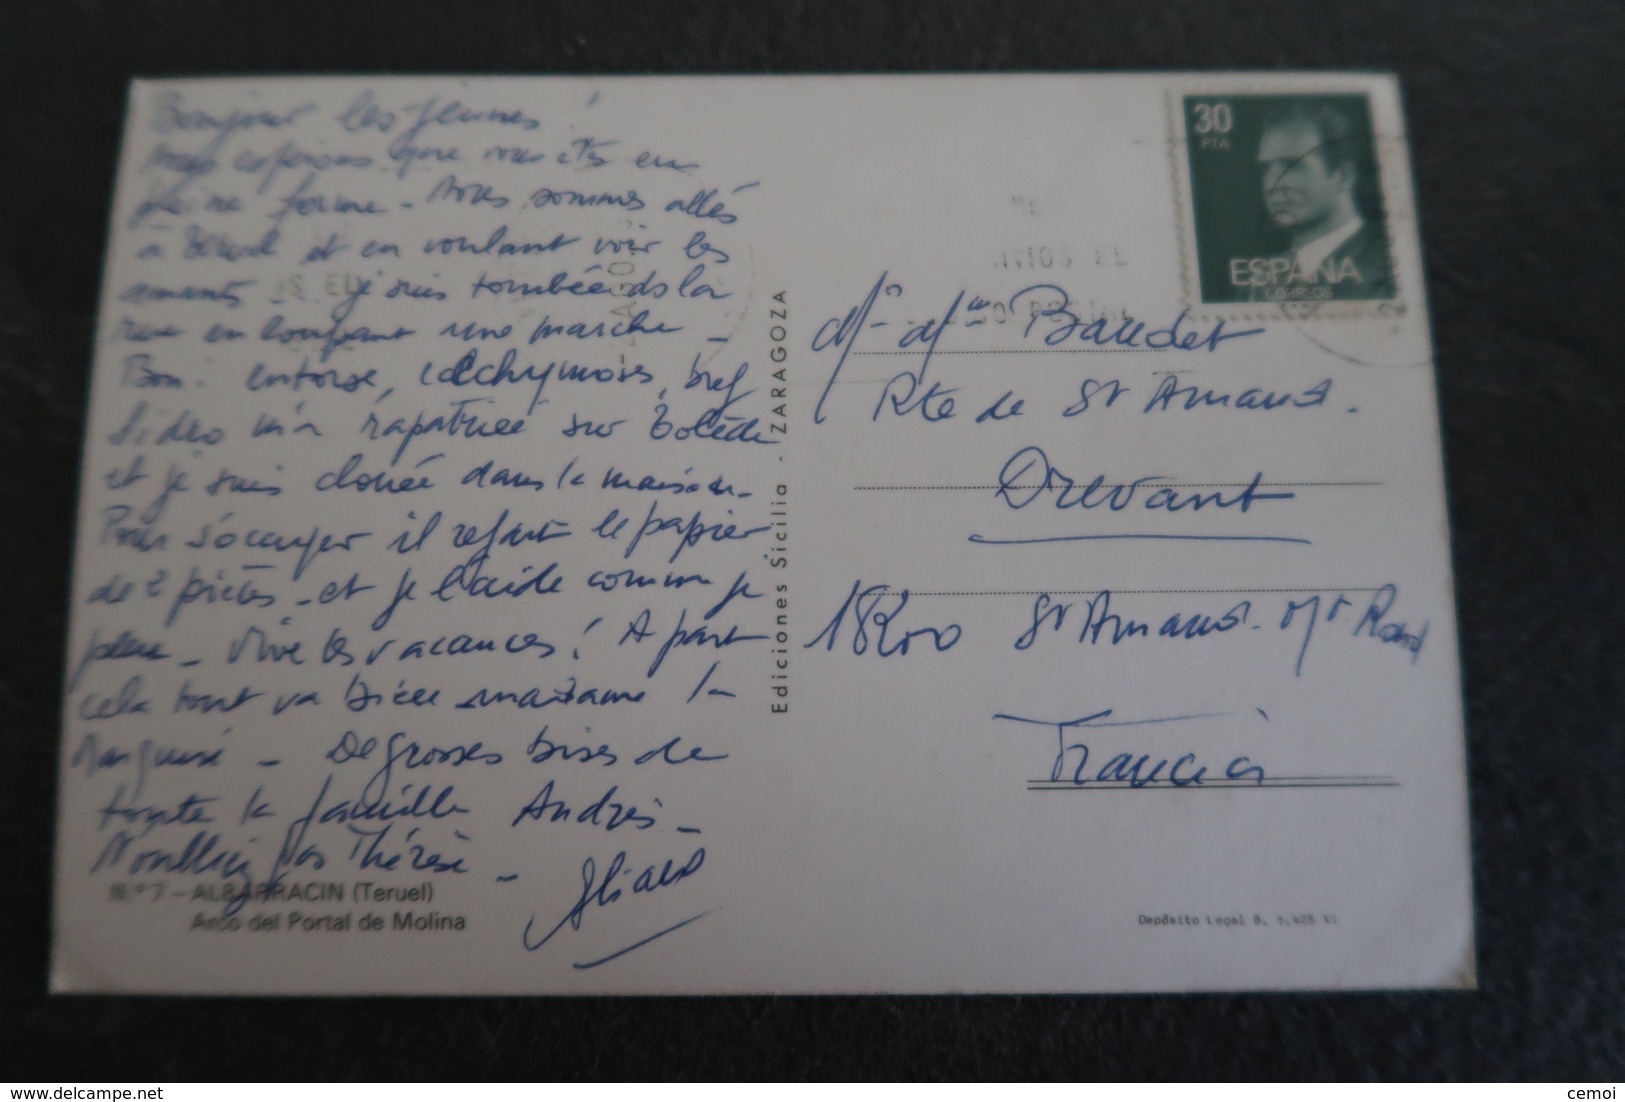 Bonjour les jeunes !
nous espérons que vous êtes en
pleine forme - Nous sommes allés
à Teruel et en voulant voir les
amants - je suis tombée ds la
rue en loupant une marche -
Bon : entorse, ecchymoses, bref
m'a rapatriée sur
et je suis clouée dans la maison -
Pour s'occuper il refait le papier
de 2 pièces - et je l'aide comme je
peux - Vive les vacances ! A part
cela tout va bien madame la
Marquise - De grosses bises de
toute la famille Andrés -
N'oubliez pas Thérèse -
N.º 7 - ALBARRACIN (Teruel)
Arco del Portal de Molina
Ediciones Sicilia - ZARAGOZA
30
PTA
ESPAÑA
CORREOS
ENVIOS EL
POSTAL
Mr Mme Baudet
Rte de St Amand.
Drevant
18200 St Amand. M/t Rond
Francia
Depósito Legal B. 1.425 XI
cemoi